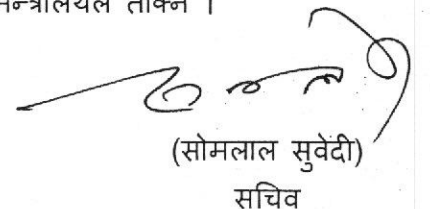 मन्त्रालयले तोक्ने ।
(सोमलाल सुवेदी)
सचिव